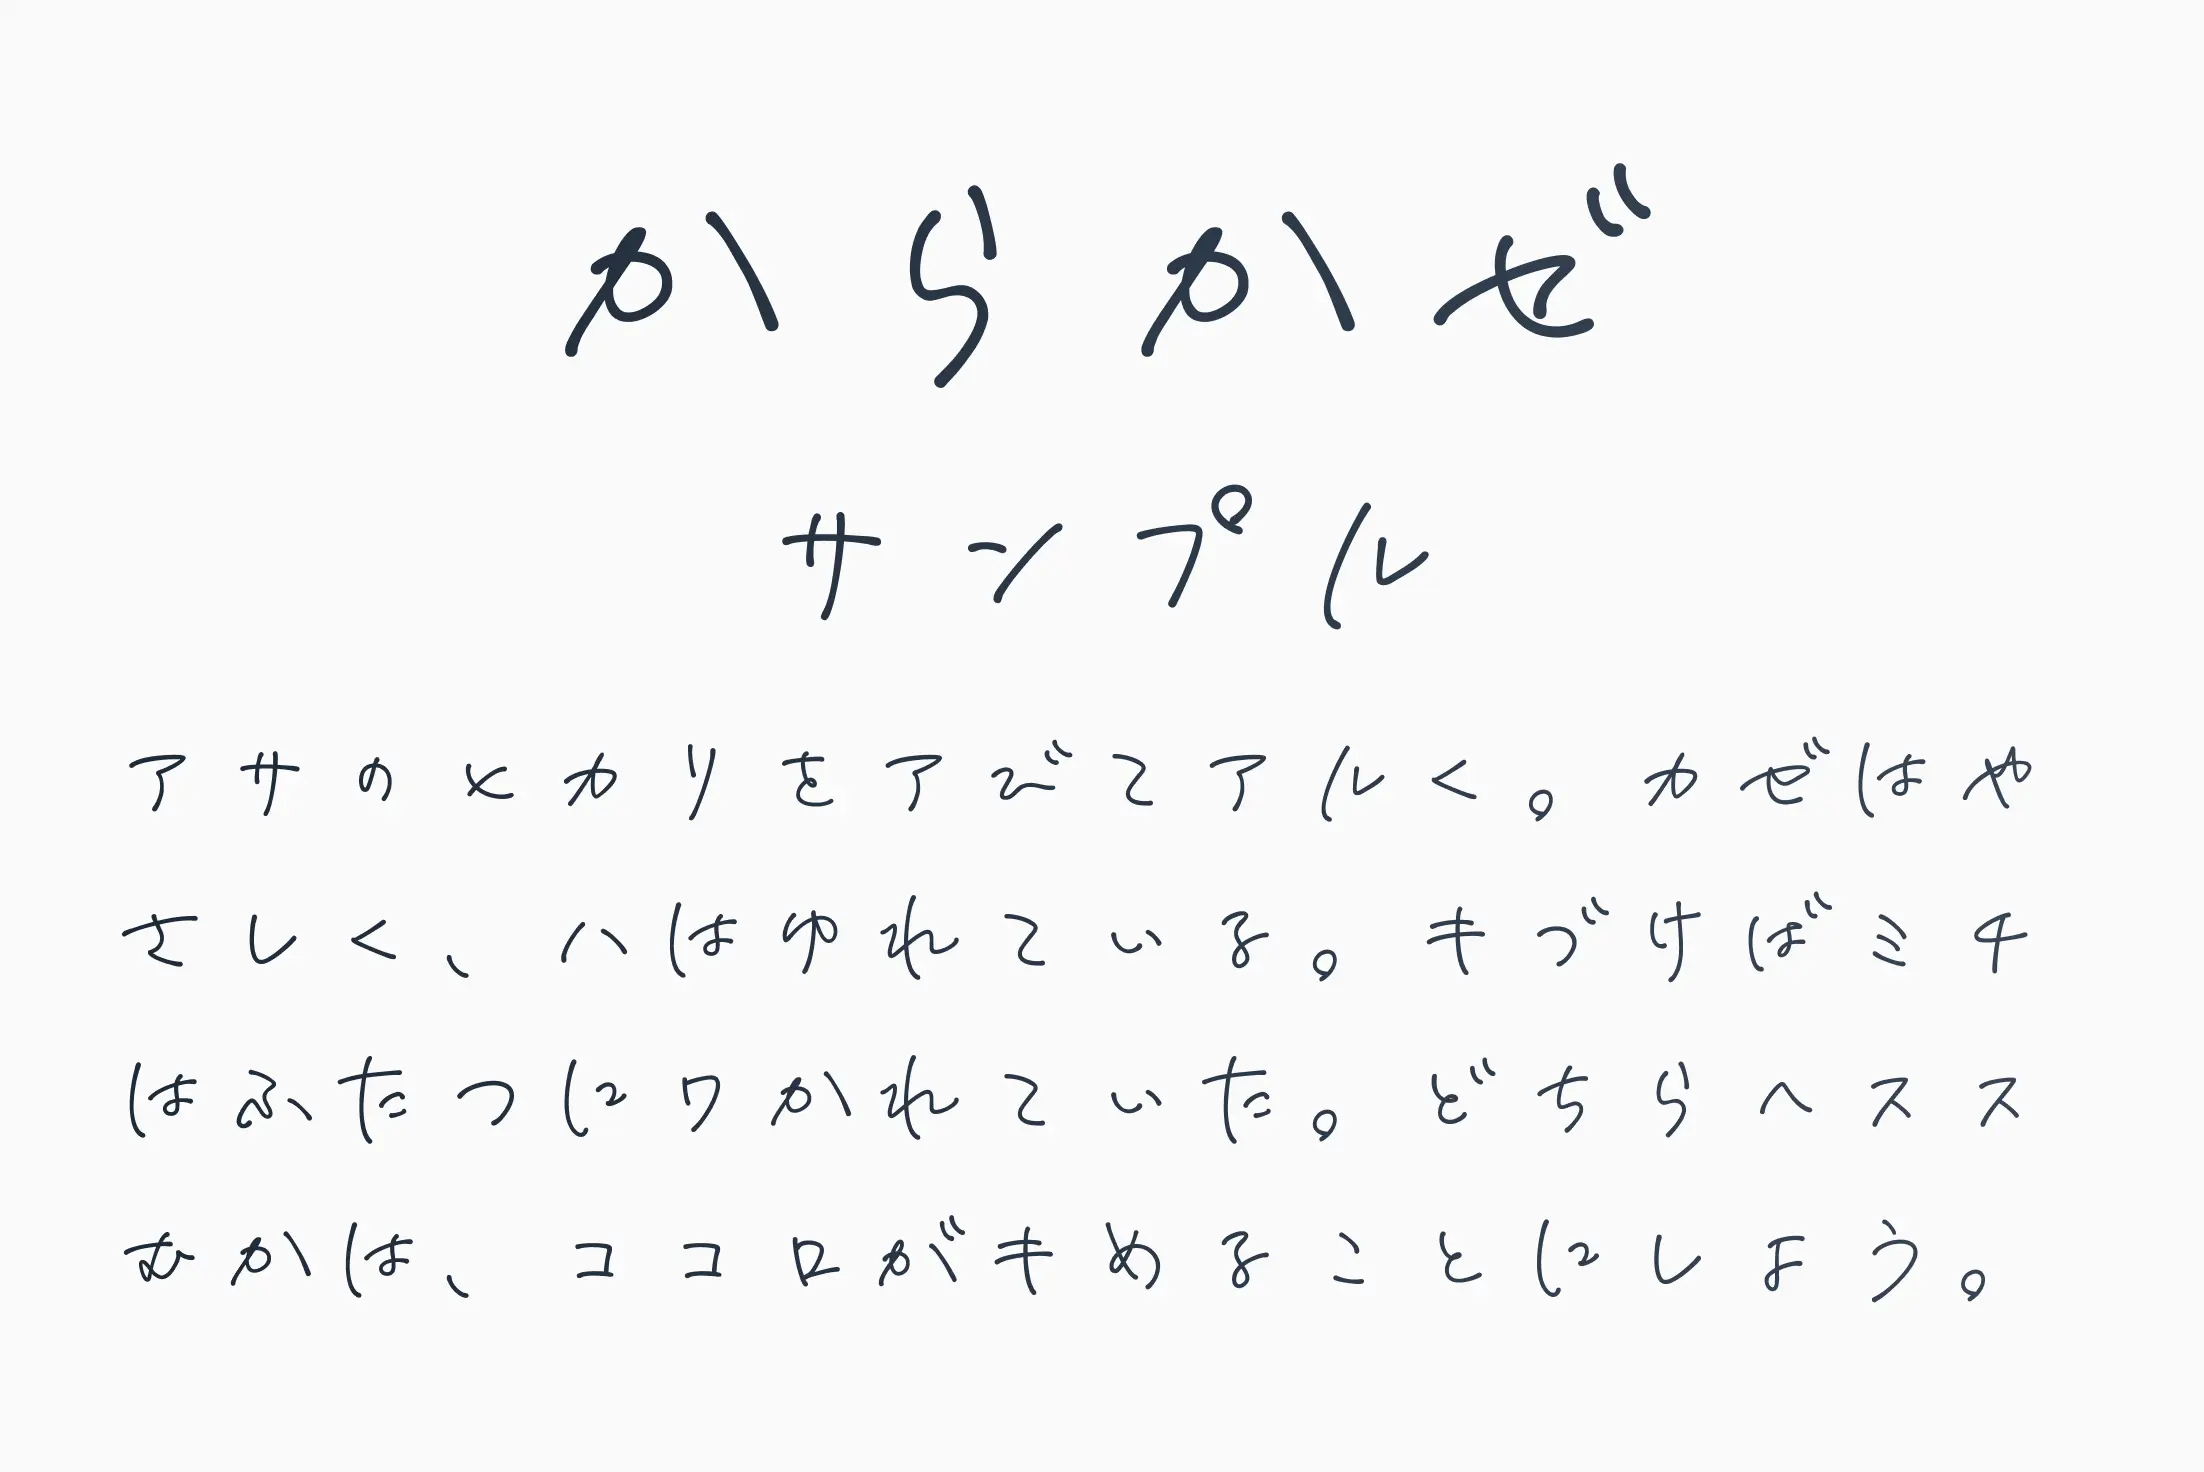 からかぜ
サンプル
アサのヒカリをアびてアルく。カぜはや
さしく、ハはゆれている。キづけばミチ
はふたつにワかれていた。どちらへスス
むかは、ココロがキめることにしよう。